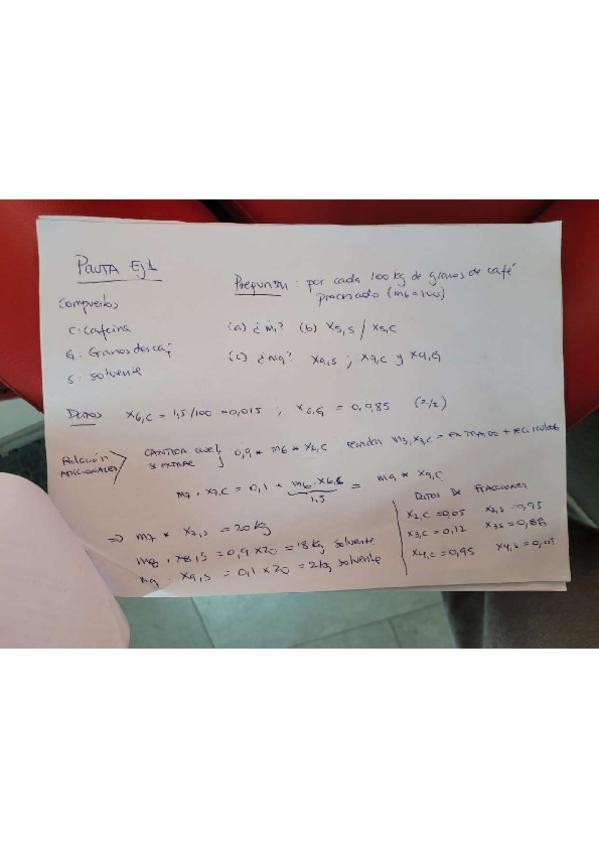 PAUTA Ej1
Compuestos
C: cafeina
G: Granos de caf
S: solvente
Preguntan: por cada 100 kg de granos de café
procesado (m6=100)
(a) ¿ṁ1? (b) x5,s / x5,c
(c) ¿m9? x9,s ; x9,c y x9,G
Datos x6,c = 1,5/100 = 0,015 ; x6,G = 0,985 (2/2)
Relación
Adicionales
CANTIDAD que
se extrae } 0,9 * m6 * x6,c m3,x3,c = extraido + recirculado
m7 . x7,c = 0,1 * m6 . x6,c / 1,5 = m9 * x9,c
⇒ m7 * x7,s = 20 kg
m8 . x8,s = 0,9 x 20 = 18 kg solvente
m9 . x9,s = 0,1 x 20 = 2 kg solvente
Datos de Fracciones
x2,c = 0,05 x2,s = 0,95
x3,c = 0,12 x3s = 0,88
x4,c = 0,95 x4,s = 0,05